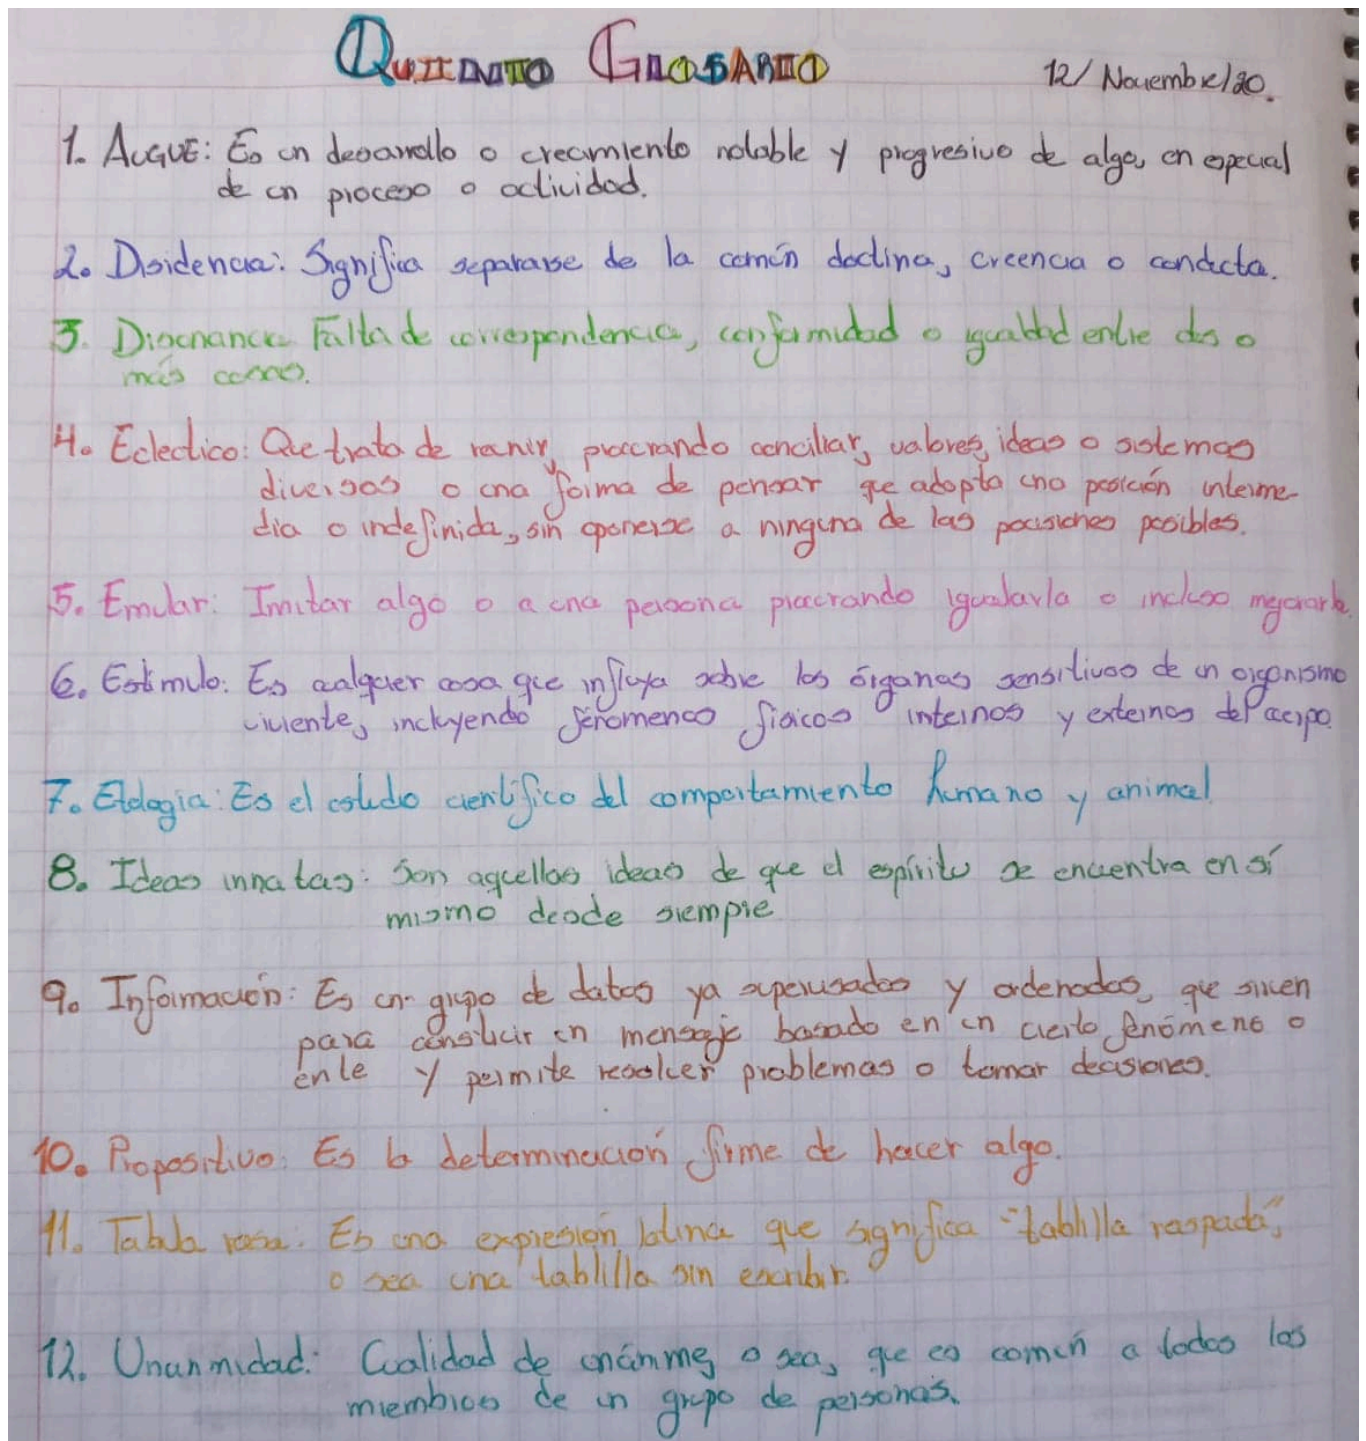 QUIINTO GLOSARIO
12/Noviembre/20.
1. AUGUE: Es un desarrollo o crecimiento notable y progresivo de algo, en especial
de un proceso o actividad.
2. Disidencia: Significa separarse de la común doctina, creencia o conducta.
3. Disonancia Falta de correspondencia, conformidad o igualdad entre dos o
más cosas.
4. Eclectico: Que trata de reunir, procurando conciliar, valores, ideas o sistemas
diversos o una forma de pensar que adopta una posición interme-
dia o indefinida, sin oponerse a ninguna de las posisiones posibles.
5. Emular: Imitar algo o a una persona procurando igualarla o incluso mejorarla.
6. Estimulo: Es cualquier cosa que influya sobre los órganos sensitivos de un organismo
viviente, incluyendo fenomenos fisicos internos y externos del cuerpo.
7. Etologia: Es el estudio cientifico del comportamiento humano y animal
8. Ideas innatas: Son aquellas ideas de que el espíritu se encuentra en sí
mismo desde siempre
9. Información: Es un grupo de datos ya supervisados y ordenados, que sirven
para construir un mensaje basado en un cierto fenómeno o
ente y permite resolver problemas o tomar decisiones.
10. Propositivo: Es la determinación firme de hacer algo.
11. Tabula rasa: Es una expresión latina que significa "tablilla raspada",
o sea una tablilla sin escribir.
12. Unanimidad: Cualidad de unánime, o sea, que es común a todos los
miembros de un grupo de personas.